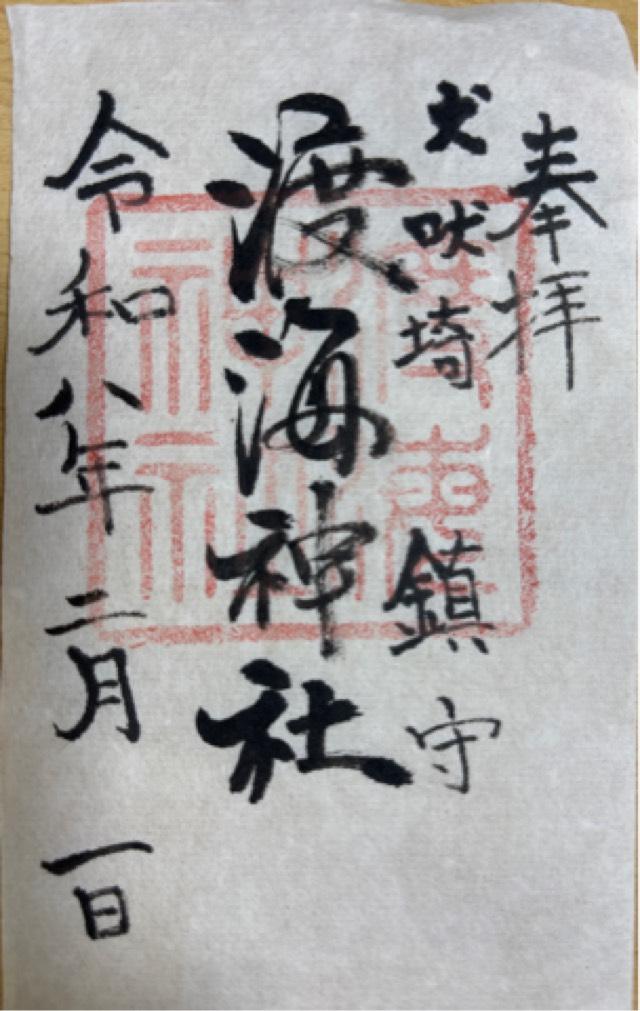 奉拝
犬吠埼鎮守
渡海神社
令和八年二月一日